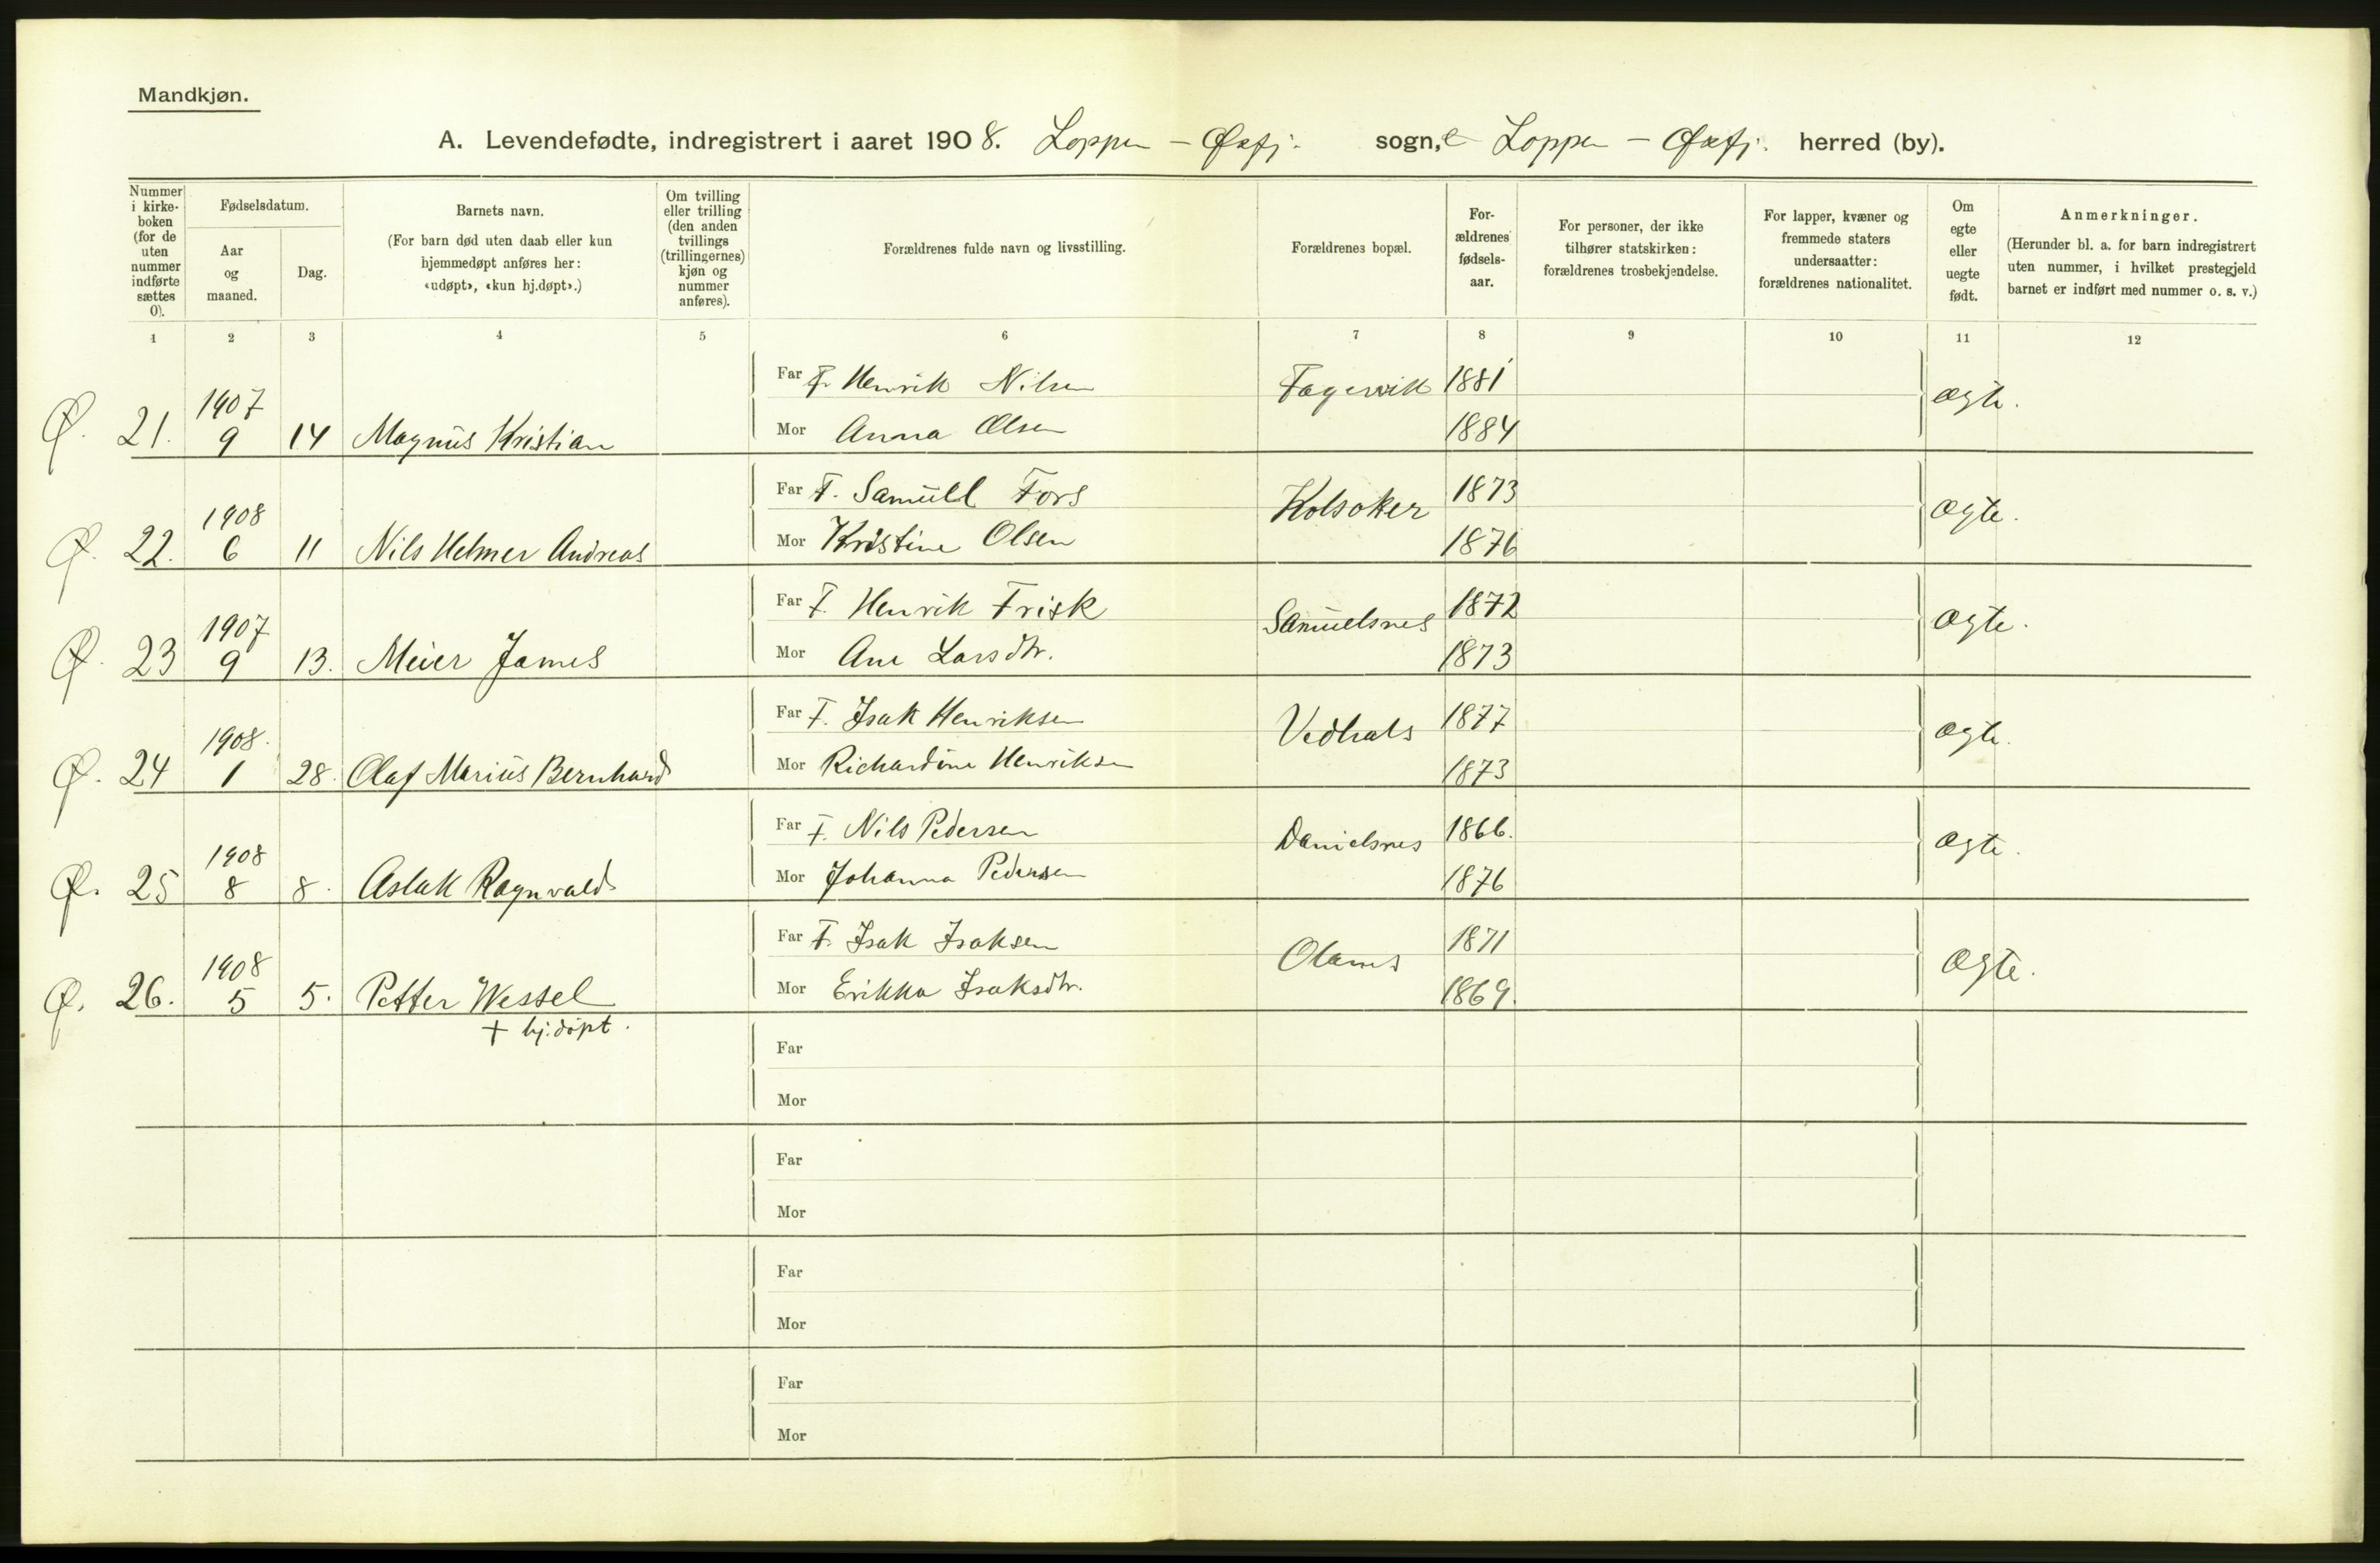 Mandkjøn.
A. Levendefødte, indregistrert i aaret 1908. Loppen - Øxfj. sogn, Loppen - Øxfj. herred (by).
Nummer i kirkeboken (for de uten nummer indførte sættes 0).
Fødselsdatum.
Aar og maaned.
Dag.
Barnets navn.
(For barn død uten daab eller kun hjemmedøpt anføres her: «udøpt», «kun hj.døpt».)
Om tvilling eller trilling (den anden tvillings (trillingernes) kjøn og nummer anføres).
Forældrenes fulde navn og livsstilling.
Forældrenes bopæl.
Forældrenes fødselsaar.
For personer, der ikke tilhører statskirken: forældrenes trosbekjendelse.
For lapper, kvæner og fremmede staters undersaatter: forældrenes nationalitet.
Om egte eller uegte født.
Anmerkninger.
(Herunder bl. a. for barn indregistrert uten nummer, i hvilket prestegjeld barnet er indført med nummer o. s. v.)
1 2 3 4 5 6 7 8 9 10 11 12
Far F. Henrik Nilsen Fagervik 1881
Ø. 21. 1907 9 14 Magnus Kristian Mor Anna Olsen 1884 ægte.
Far F. Samuel Fors Kolsaker 1873
Ø. 22. 1908 6 11 Nils Helmer Andreas Mor Kristine Olsen 1876 ægte.
Far F. Henrik Frisk Samuelsnes 1872
Ø. 23 1907 9 13. Meier James Mor Ane Larsdtr. 1873 ægte.
Far F. Isak Henriksen Vedhals 1877
Ø. 24 1908. 1 28. Olaf Marius Bernhard Mor Richardine Henriksen 1873 ægte.
Far F. Nils Pedersen Danielsnes 1866.
Ø. 25 1908 8 8. Aslak Ragnvald Mor Johanna Pedersen 1876 ægte.
Far F. Isak Isaksen Olanes 1871
Ø. 26. 1908 5 5. Petter Wessel Mor Erikka Isaksdtr. 1869. ægte.
+ hj.døpt.
Far
Mor
Far
Mor
Far
Mor
Far
Mor